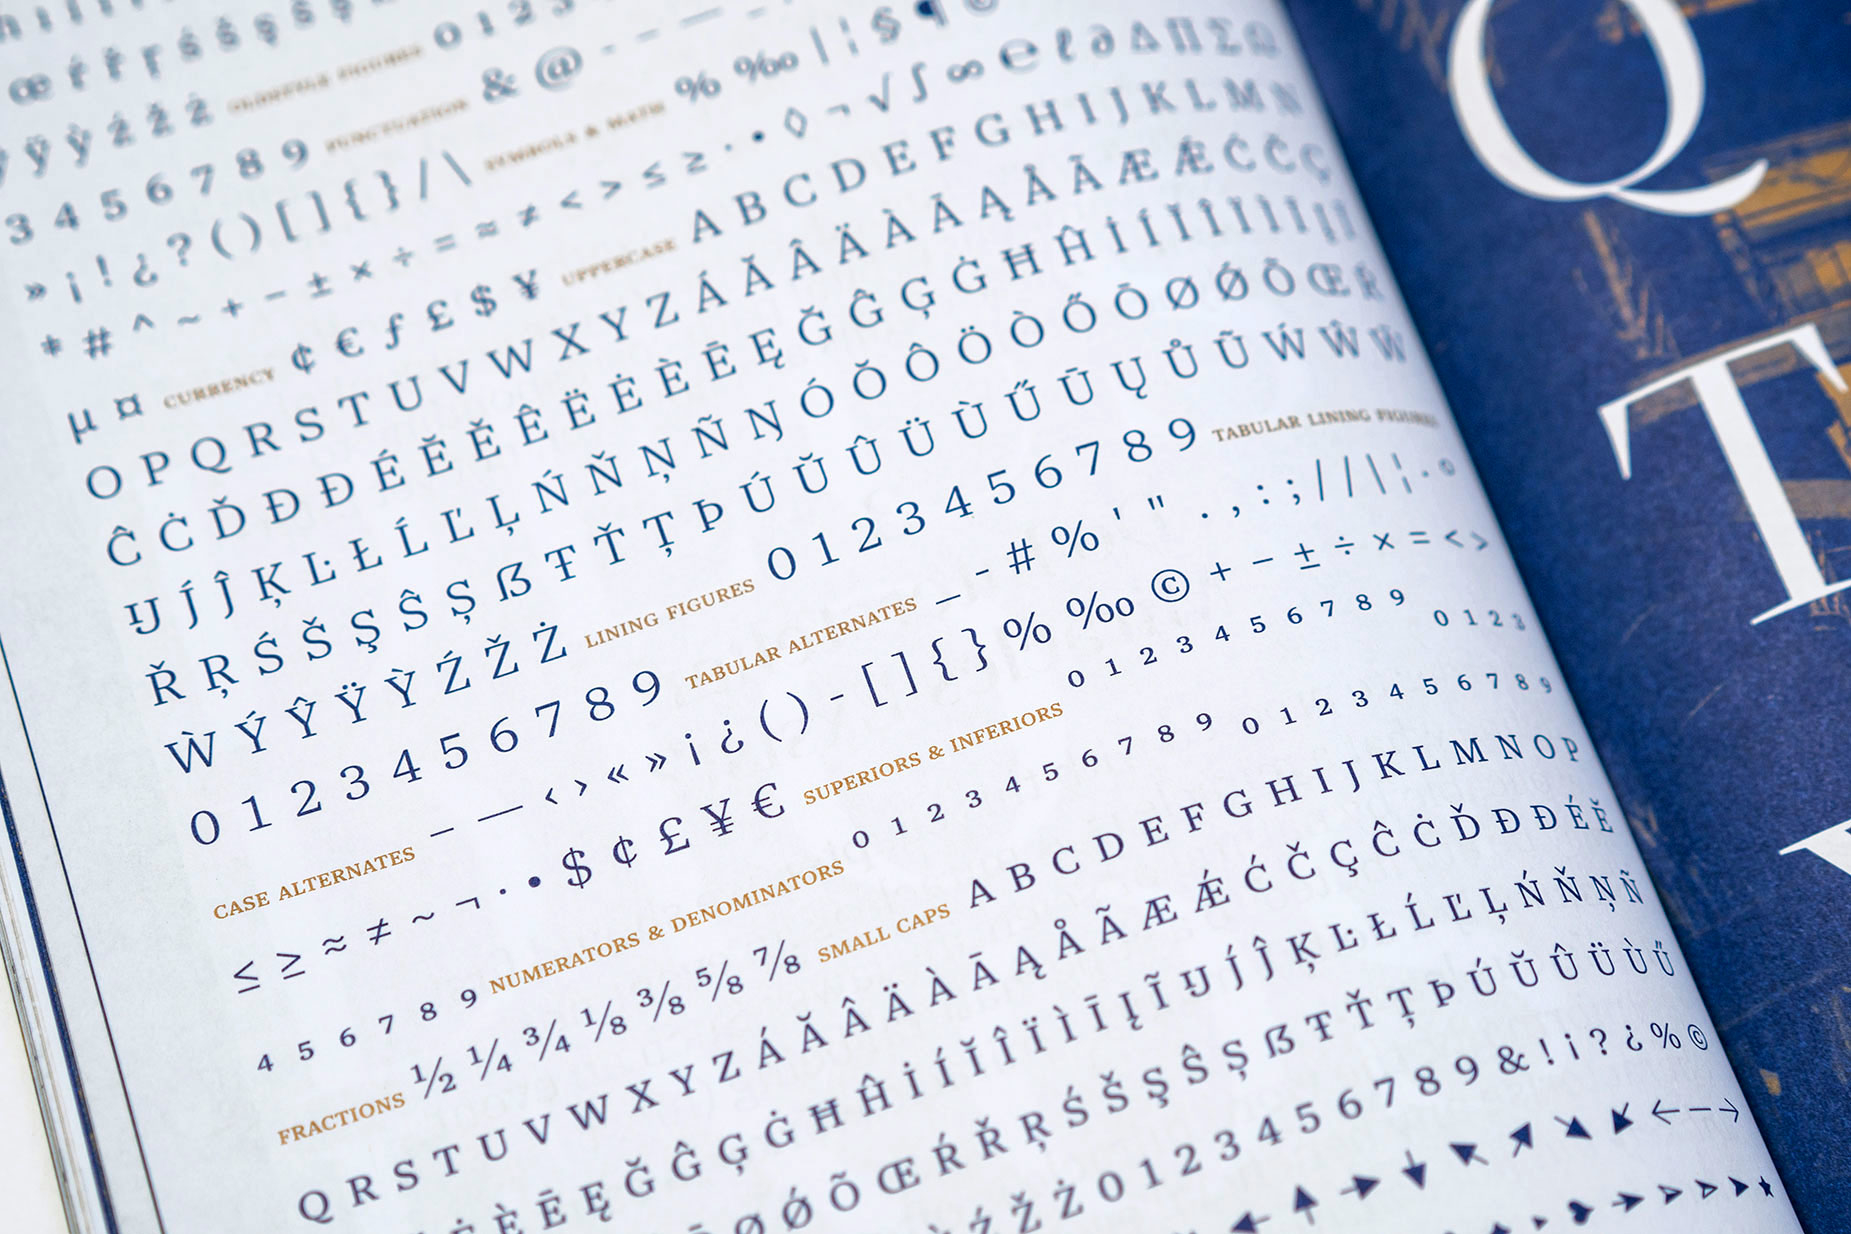 œ ŕ ř ŗ ś š ş ŝ ș
ÿ ỳ ź ž ż OLDSTYLE FIGURES 0 1 2
3 4 5 6 7 8 9 PUNCTUATION & @ - – —
» ¡ ! ¿ ? ( ) [ ] { } / \ SYMBOLS & MATH % ‰ | ¦ § ¶ ©
* # ^ ~ + − ± × ÷ = ≈ ≠ < > ≤ ≥ · • ◊ ¬ √ ∫ ∞ ℮ ℓ ∂ ∆ ∏ ∑ Ω
µ ¤ CURRENCY ¢ € ƒ £ $ ¥ UPPERCASE A B C D E F G H I J K L M N
O P Q R S T U V W X Y Z Á Ă Â Ä À Ā Ą Å Ã Æ Ǽ Ć Č Ç
Ĉ Ċ Ď Đ Ð É Ĕ Ě Ê Ë Ė È Ē Ę Ğ Ĝ Ģ Ġ Ħ Ĥ İ Í Ĭ Î Ï Ì Ī Į Ĩ
Ĳ J́ Ĵ Ķ Ŀ Ł Ĺ Ľ Ļ Ń Ň Ņ Ñ Ŋ Ó Ŏ Ô Ö Ò Ő Ō Ø Ǿ Õ Œ Ŕ
Ř Ŗ Ś Š Ş Ŝ Ș ẞ Ŧ Ť Ț Þ Ú Ŭ Û Ü Ù Ű Ū Ų Ů Ũ Ẃ Ŵ Ẅ
Ẁ Ý Ŷ Ÿ Ỳ Ź Ž Ż LINING FIGURES 0 1 2 3 4 5 6 7 8 9 TABULAR LINING FIGURES
0 1 2 3 4 5 6 7 8 9 TABULAR ALTERNATES – - # % ' " . , : ; / / | ¦ · ©
CASE ALTERNATES – — ‹ › « » ¡ ¿ ( ) - [ ] { } % ‰ © + − ± ÷ × = < >
≤ ≥ ≈ ≠ ~ ¬ · • $ ¢ £ ¥ € SUPERIORS & INFERIORS 0 1 2 3 4 5 6 7 8 9 0 1 2 3
4 5 6 7 8 9 NUMERATORS & DENOMINATORS 0 1 2 3 4 5 6 7 8 9 0 1 2 3 4 5 6 7 8 9
FRACTIONS ½ ¼ ¾ ⅛ ⅜ ⅝ ⅞ SMALL CAPS A B C D E F G H I J K L M N O P
Q R S T U V W X Y Z Á Ă Â Ä À Ā Ą Å Ã Æ Ǽ Ć Č Ç Ĉ Ċ Ď Đ Ð É Ĕ
Ė È Ē Ę Ğ Ĝ Ģ Ġ Ħ Ĥ İ Í Ĭ Î Ï Ì Ī Į Ĩ Ĳ J́ Ĵ Ķ Ŀ Ł Ĺ Ľ Ļ Ń Ň Ņ Ñ
Ō Ø Ǿ Õ Œ Ŕ Ř Ŗ Ś Š Ş Ŝ Ș ẞ Ŧ Ť Ț Þ Ú Ŭ Û Ü Ù Ű
Ź Ž Ż 0 1 2 3 4 5 6 7 8 9 & ! ¡ ? ¿ % ©
← ↑ → ↓ ↖ ↗ ↘ ↙ ← – →
Q
T